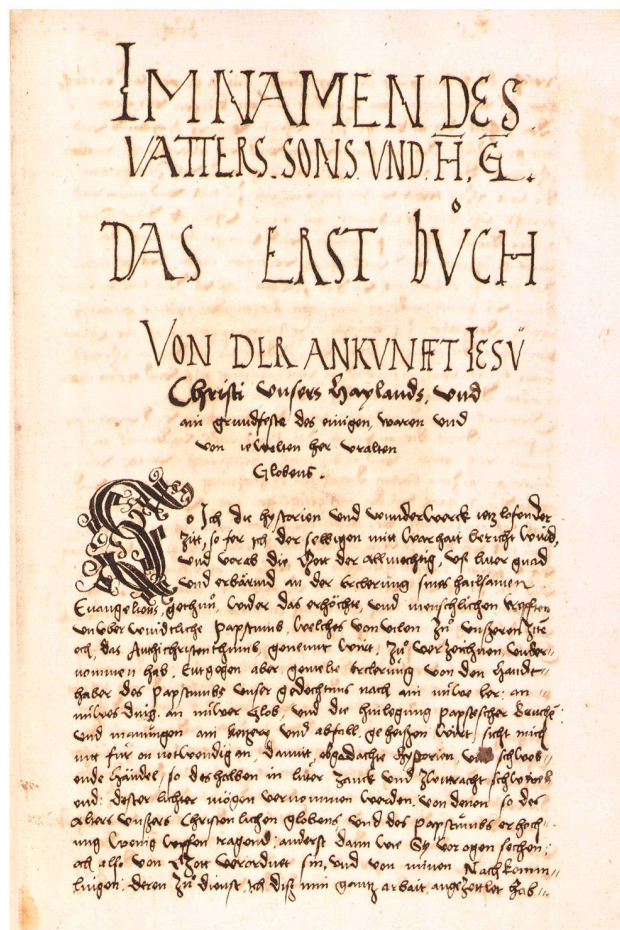 IM NAMEN DES
VATTERS. SONS VND. H̄. ḠL.
DAS ERST bůCH
VON DER ANKVNFFT IESV
Christi vnsers Haylands, vnd
ain grundfeste des einigen, waren vnd
von ie welten her vralten
Globens.
So Ich die hystorien vnd wunderwerck ietz lofender
zitt, so fer ich der selbigen mitt warhait bericht wird,
vnd vorab die Gott der allmechtig, vß luter gnad
vnd erbärmd an der erclerung sines hailsamen
Euangelions, gethun, wider das erhöchte, vnd menschlichen
vnüberwindtliche Papstumb, welches von vilen zů vnseren
och, das Antichristenthumb, genemt wirt, zů verzeichnen vnder-
nommen hab, Entgegen aber, gemelte erclerung von den handt-
haber des Papstumbs vnser gedechtnus nach ain nüwe ler, an
nüwes ding, an nüwer glob, vnd die hinlegung papstischer brüche
vnd mainungen ain ketzery vnd abfall geheißen wirt, sicht mich
nit für on notwendig an, damit, obgedachte hystorien, schweb-
ende händel, so deshalben in luter zanck vnd zwitracht schweben
sind: dester lichter mögen vernommen werden, von denen so des
alters vnsers Christenlichen globens vnd des papstumbs erhöch-
ung wenig wissen tragend; anderst dann wie Sy vor ogen sechen;
och also von Gott verordnet sin, vnd von minen Nachkomm-
lingen; deren zů dienst, ich diß min gantz arbait, angezettlet hab